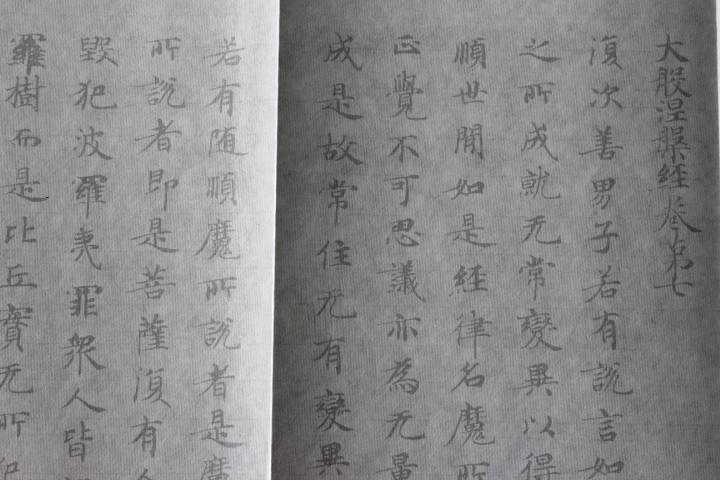 大般涅槃経巻第七
復次善男子若有説言如
之所成就无常變異以得
順世間如是経律名魔所
正覺不可思議亦為无量
成是故常住无有變異
若有随順魔所説者是魔
所説者即是菩薩復有
毀犯波羅夷罪衆人皆
羅樹而是比丘實无所犯